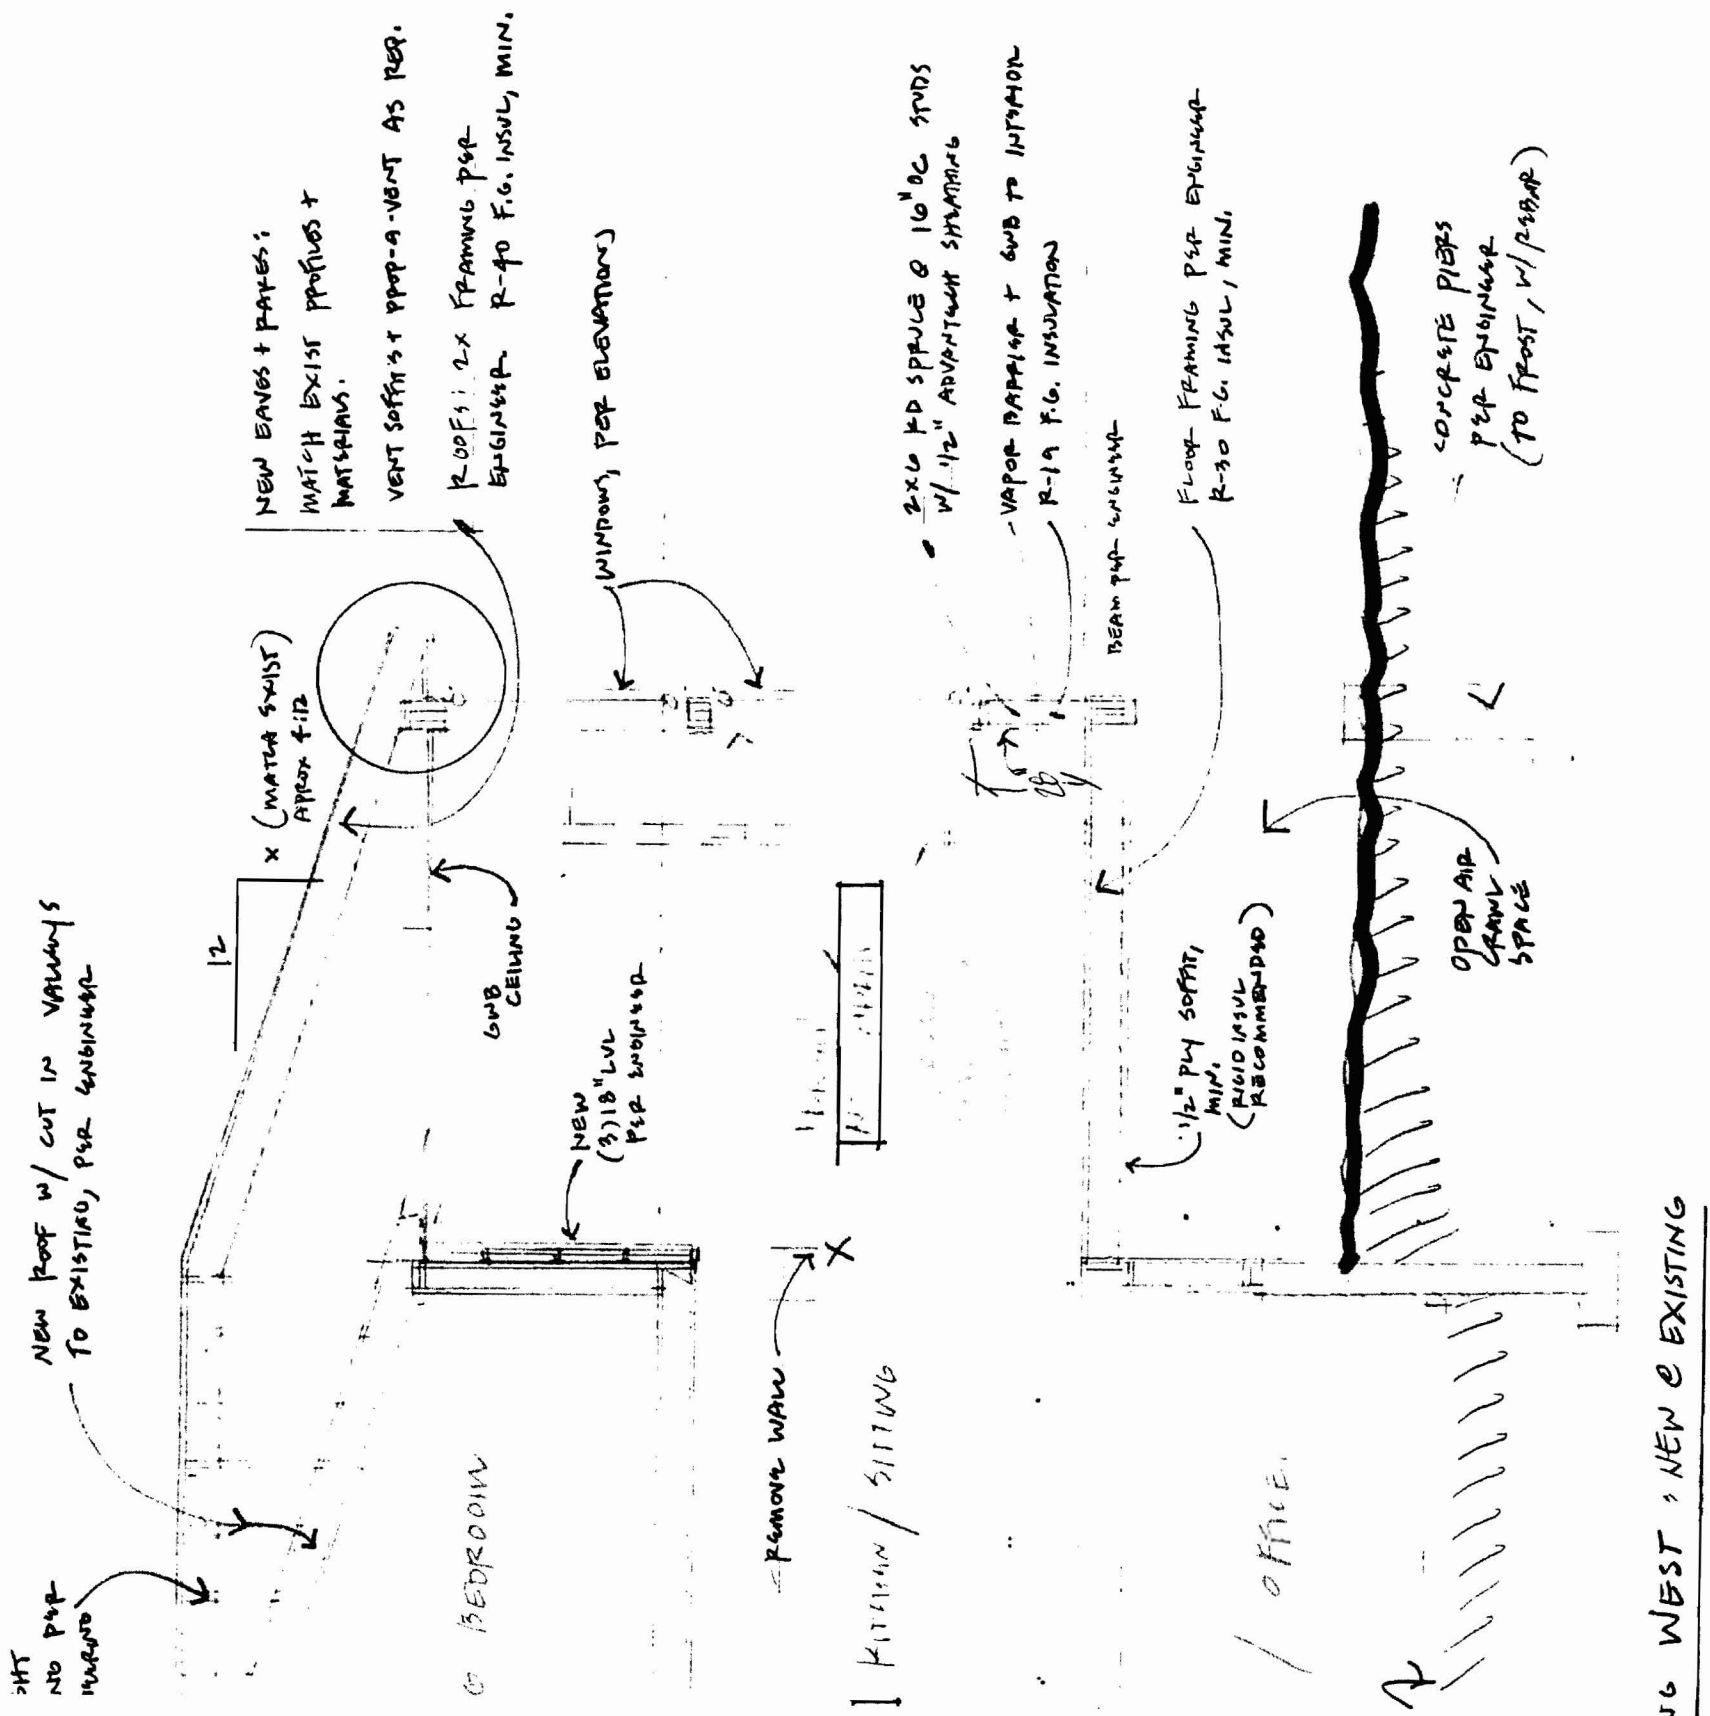 NEW ROOF W/ CUT IN VALLEYS
TO EXISTING, PER ENGINEER
NO PER
12
X (MATCH EXIST)
APPROX 4:12
NEW EAVES + RAKES:
MATCH EXIST PROFILES +
MATERIALS.
VENT SOFFITS + PROP-A-VENT AS REQ.
ROOFS: 2X FRAMING PER
ENGINEER R-40 F.G. INSUL, MIN.
GWB
CEILING
WINDOWS, PER ELEVATIONS
NEW
(3) 18" LVL
PER ENGINEER
BEDROOM
REMOVE WALL
X
KITCHEN / SITTING
2X6 KD SPRUCE @ 16" OC STUDS
W/ 1/2" ADVANTECH SHEATHING
- VAPOR BARRIER + GWB TO INTERIOR
R-19 F.G. INSULATION
BEAM PER ENGINEER
FLOOR FRAMING PER ENGINEER
R-30 F.G. INSUL, MIN.
1/2" PLY SOFFIT,
MIN.
(RIGID INSUL
RECOMMENDED)
/ OFFICE
OPEN AIR
CRAWL
SPACE
CONCRETE PIERS
PER ENGINEER
(TO FROST, W/ REBAR)
NG WEST : NEW @ EXISTING